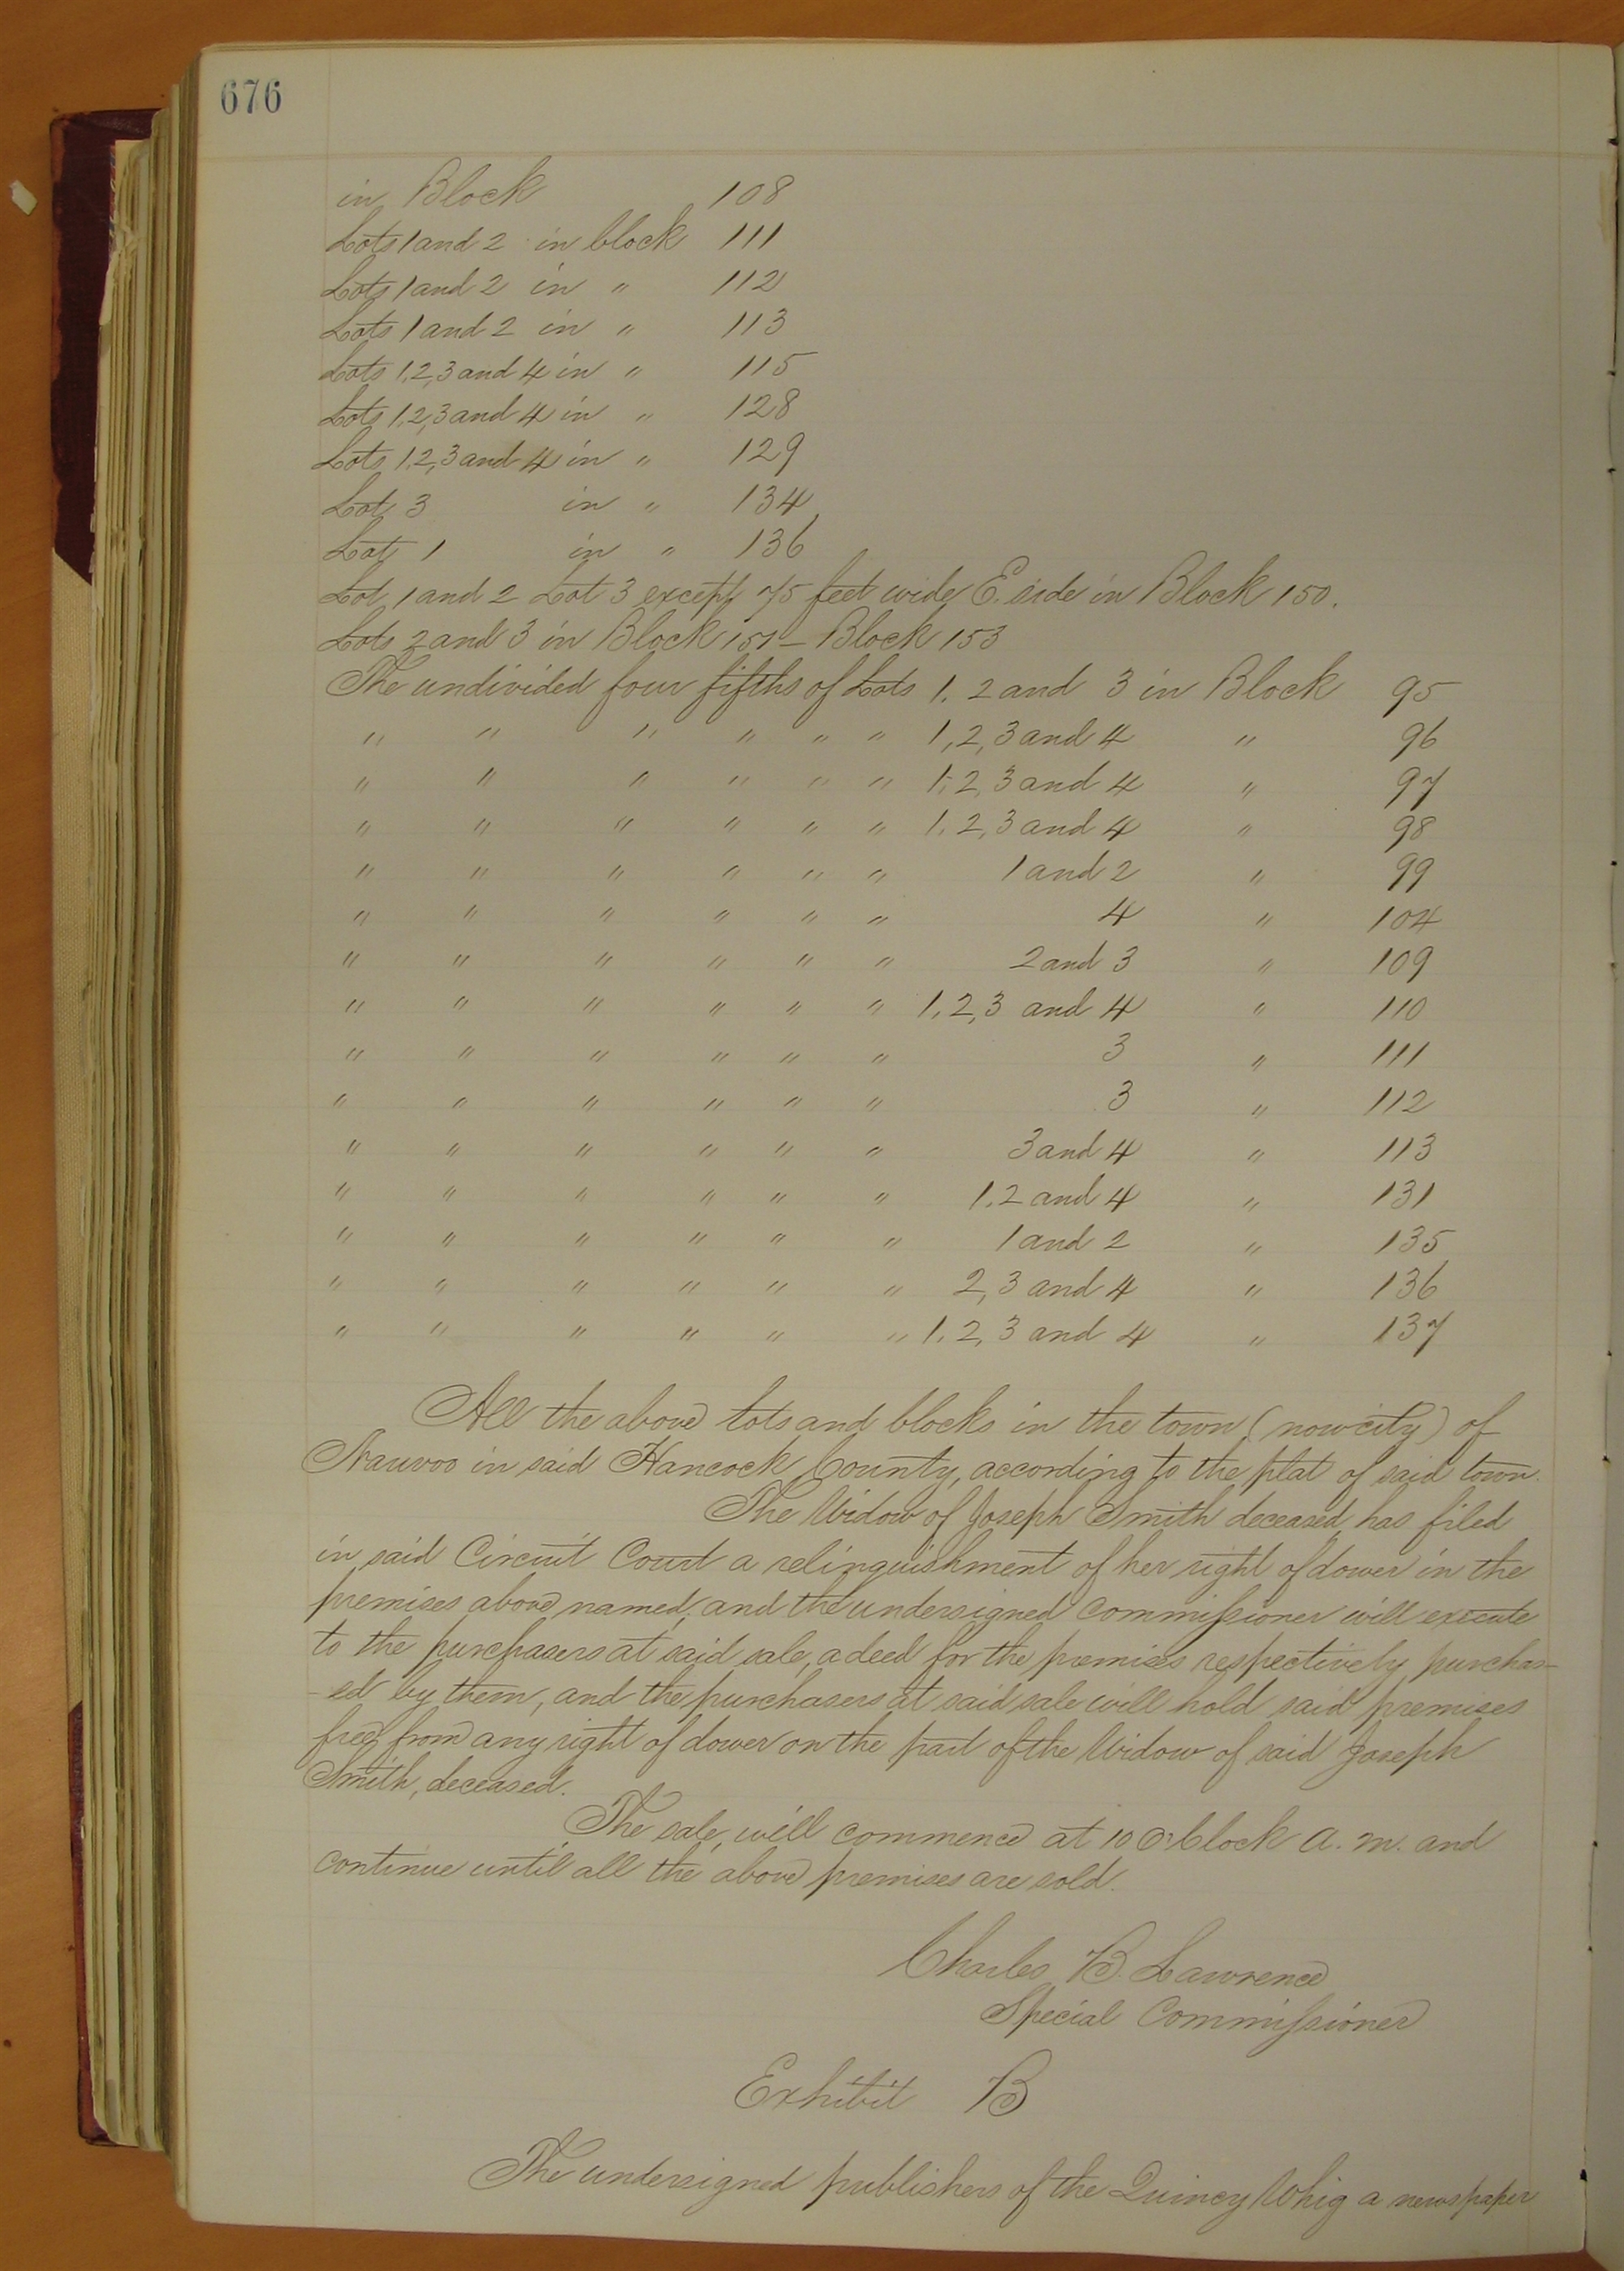 676
in Block 108
Lots 1 and 2 in block 111
Lots 1 and 2 in " 112
Lots 1 and 2 in " 113
Lots 1,2,3 and 4 in " 115
Lots 1,2,3 and 4 in " 128
Lots 1,2,3 and 4 in " 129
Lot 3 in " 134
Lot 1 in " 136
Lot 1 and 2 Lot 3 except 75 feet wide E. side in Block 150.
Lots 2 and 3 in Block 151 – Block 153
The undivided four fifths of Lots 1, 2 and 3 in Block 95
" " " " " " 1,2,3 and 4 " 96
" " " " " " 1,2,3 and 4 " 97
" " " " " " 1,2,3 and 4 " 98
" " " " " " 1 and 2 " 99
" " " " " " 4 " 104
" " " " " " 2 and 3 " 109
" " " " " " 1,2,3 and 4 " 110
" " " " " " 3 " 111
" " " " " " 3 " 112
" " " " " " 3 and 4 " 113
" " " " " " 1,2 and 4 " 131
" " " " " " 1 and 2 " 135
" " " " " " 2,3 and 4 " 136
" " " " " " 1,2,3 and 4 " 137
All the above lots and blocks in the town (now city) of
Nauvoo in said Hancock County, according to the plat of said town.
The Widow of Joseph Smith deceased has filed
in said Circuit Court a relinquishment of her right of dower in the
premises above named, and the undersigned commissioner will execute
to the purchasers at said sale, a deed for the premises respectively purchas–
–ed by them, and the purchasers at said sale will hold said premises
free from any right of dower on the part of the Widow of said Joseph
Smith, deceased.
The sale will commence at 10 O'Clock a.m. and
continue until all the above premises are sold.
Charles B. Lawrence
Special Commissioner
Exhibit B
The undersigned publishers of the Quincy Whig a newspaper